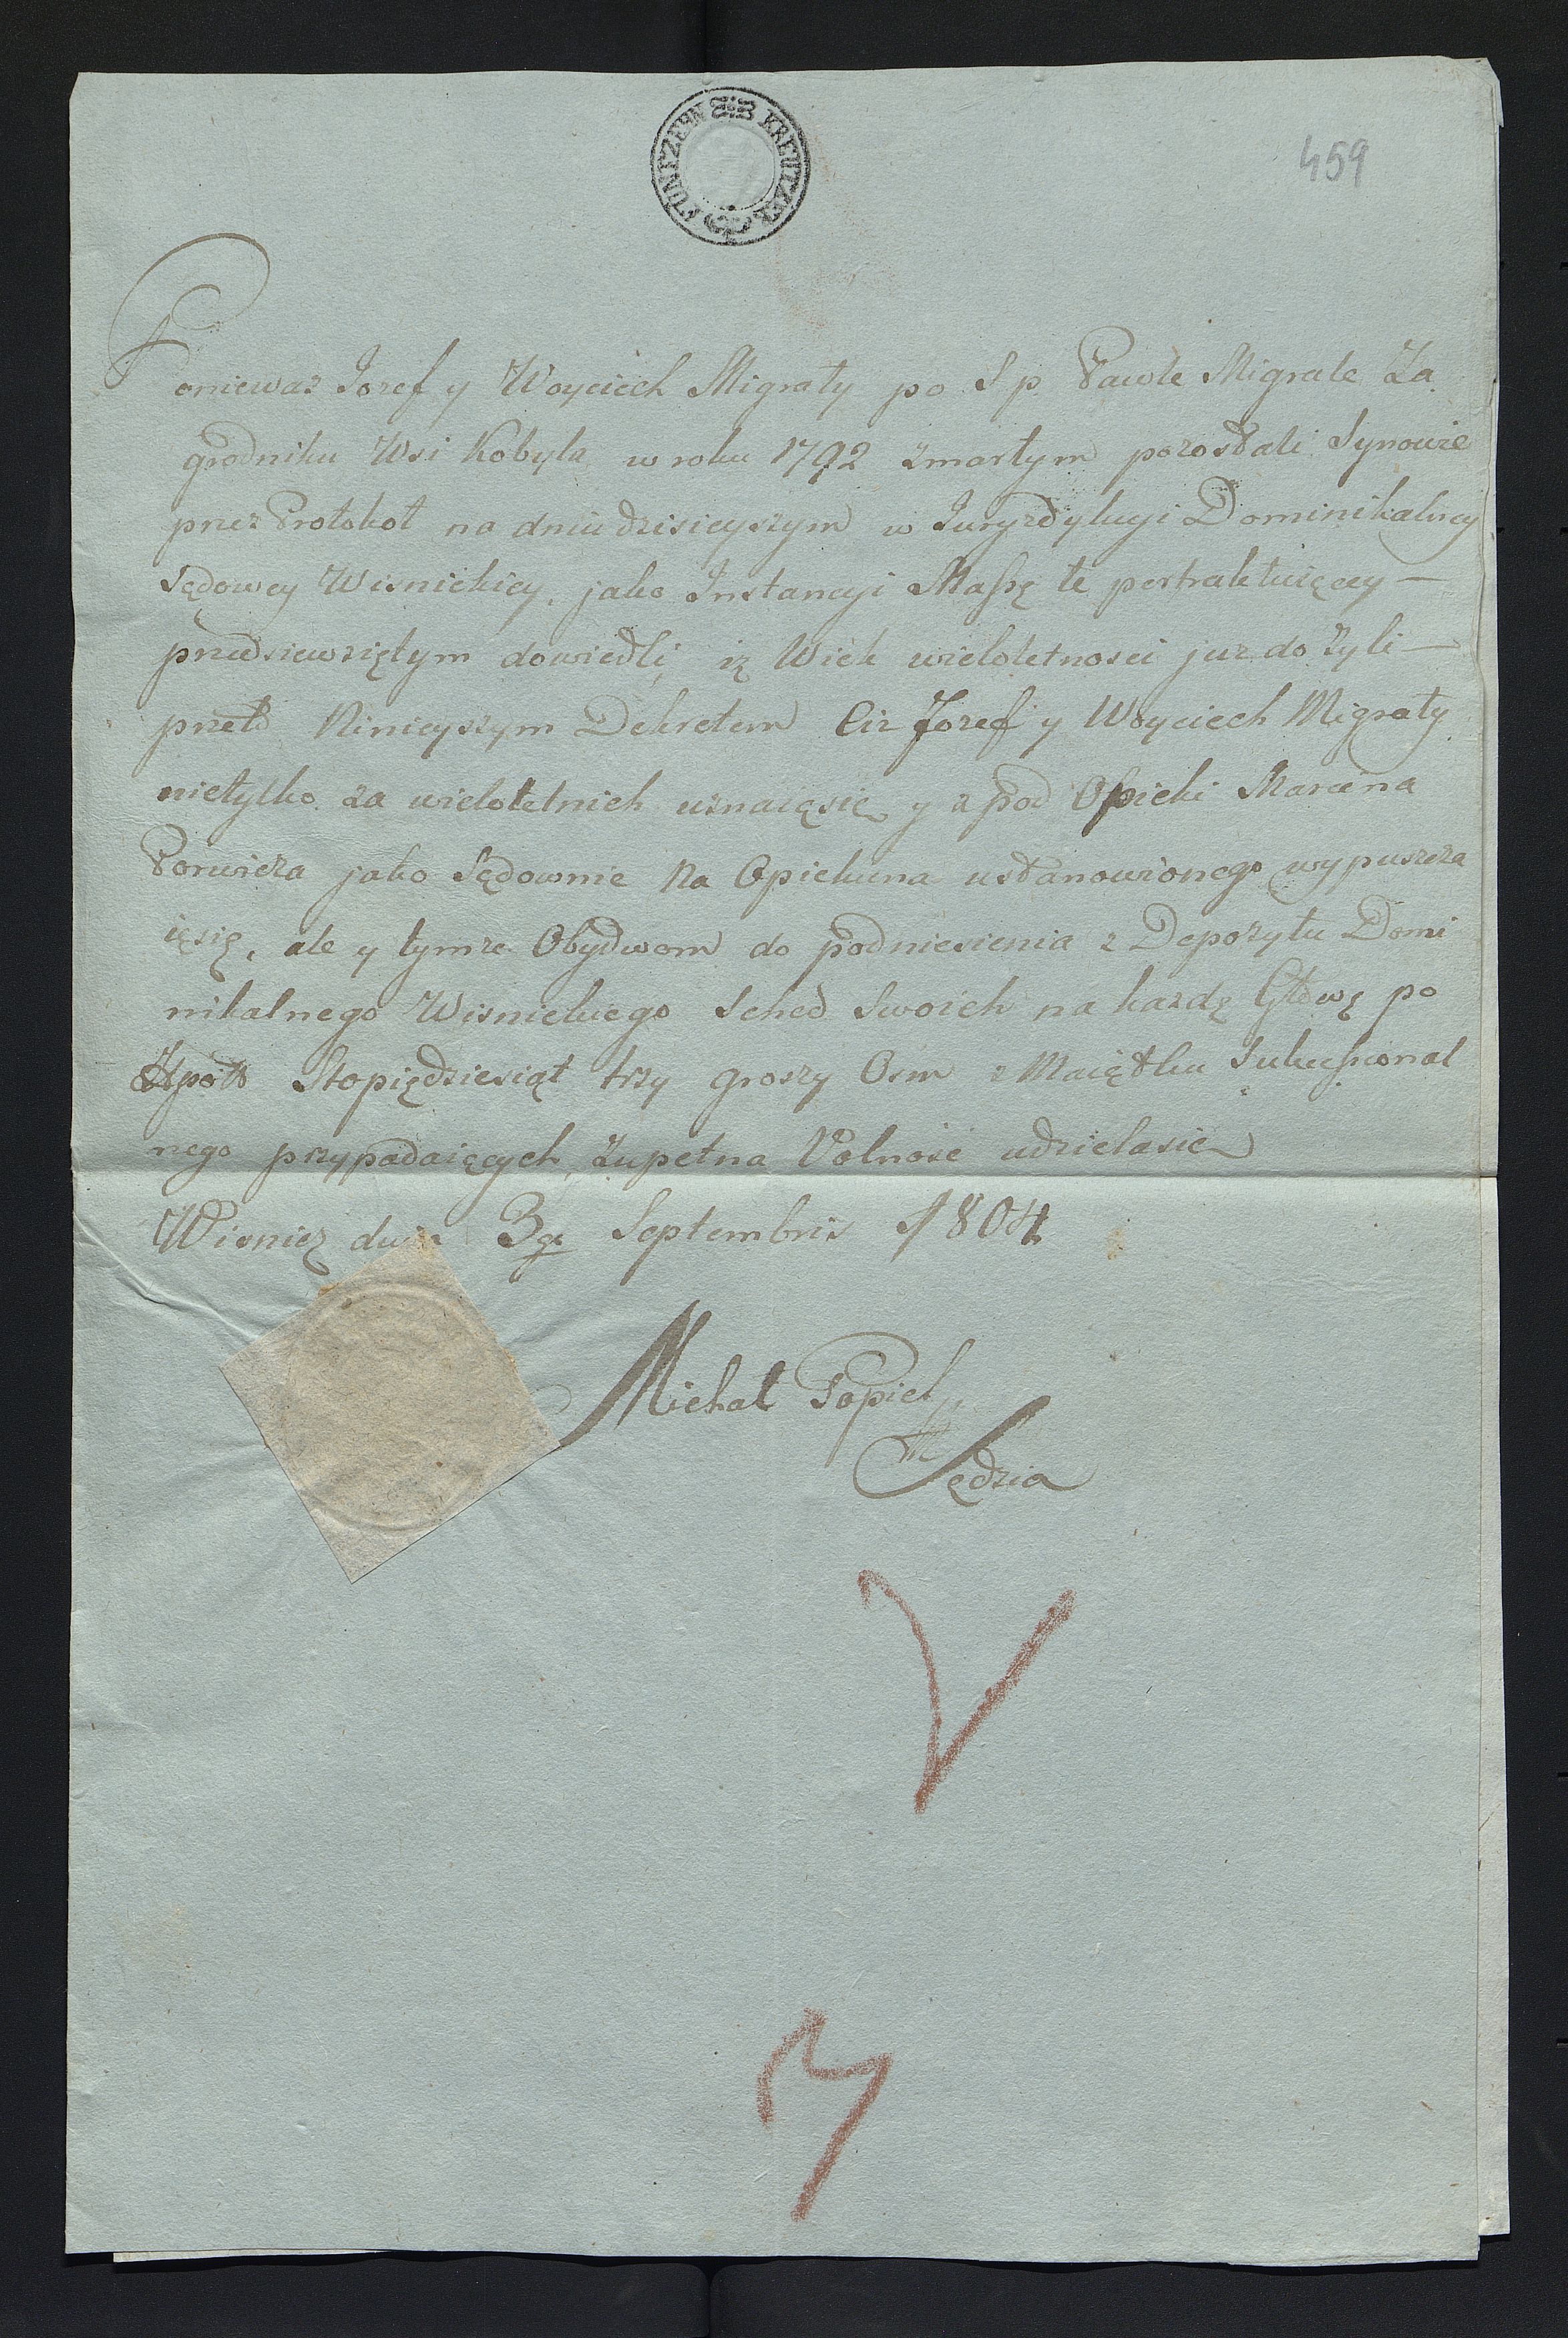 FUNFZEHN KREUTZER
459
Poniewaz Jozef y Woyciech Migrały po S p Pawle Migrale Za
grodniku Wsi Kobyla w roku 1792 zmarłym pozostali Synowie
przez Protokoł na dniu dzisieyszym w Juryzdykcyi Dominikalney
Sędowey Wisnickiey, jako Instancyi Massę te pertraktuięcey —
przedsiewziętym dowiedli, iż Wiek wieloletnosci juz do zyli —
przeto Ninieyszym Dekretem Ciz Jozef y Woyciech Migrały
nietylko za wieloletnich uznaięsię y z pod Opieki Marcina
jako Sędownie Na Opiekuna ustanowionego wypuszcza
ięsię, ale y tymze Obydwom do podniesienia z Depozytu Domi
nikalnego Wisnickiego Sched Swoich na kazdę Głowę po
Stopiędziesiąt trzy groszy Osm z Maiętku Sukcessional
nego przypadaięcych, zupełna Wolność udzielasię
Wisnicz dnia 3go Septembris 1804
Michał Popiel
Sędzia